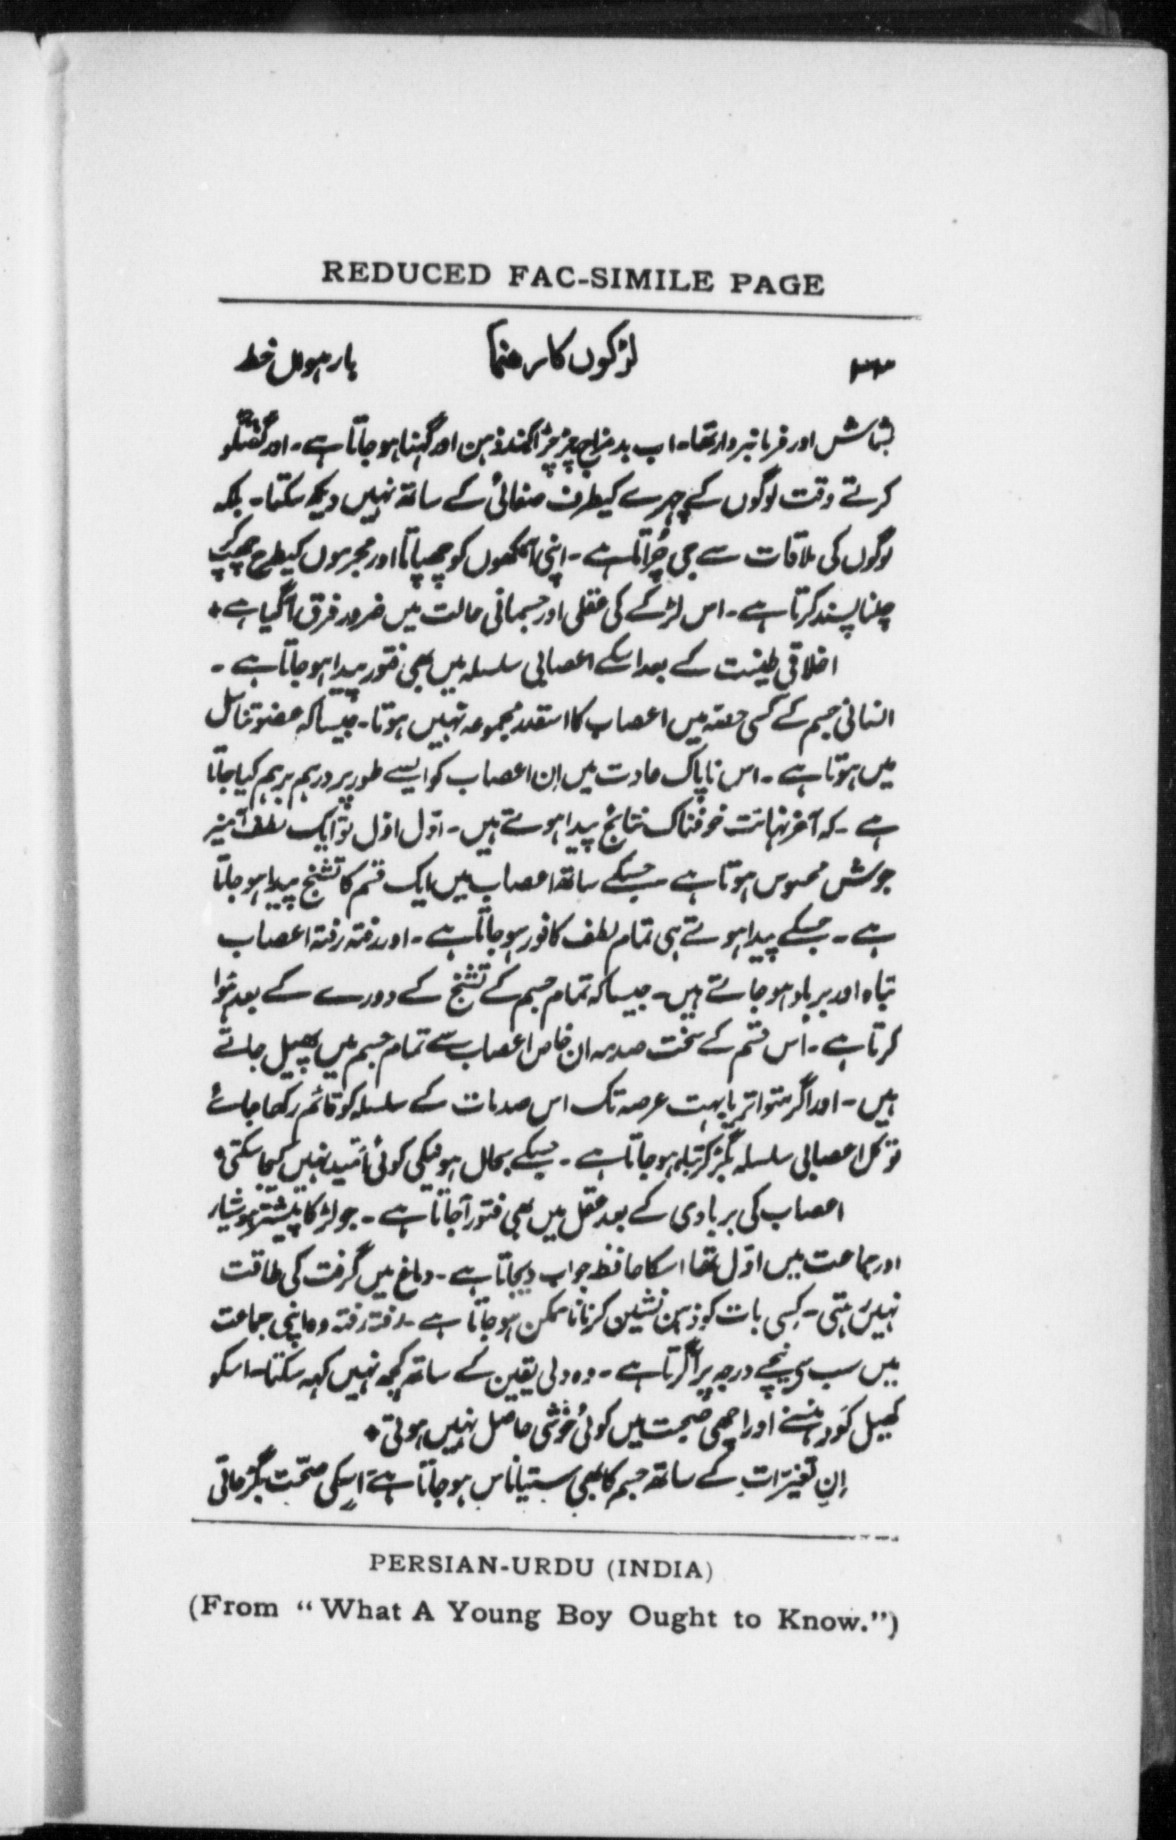 REDUCED FAC-SIMILE PAGE
۳۳ لڑکوں کا رہنما بارہواں خط
بشاش اور فرمانبردار تھا۔ اب بد مزاج چڑچڑا کند ذہن اور گہنا ہو جاتا ہے۔ اور گفتگو
کرتے وقت لوگوں کے چہرے کیطرف صفائی کے ساتھ نہیں دیکھ سکتا۔ بلکہ
لوگوں کی ملاقات سے جی چُراتا ہے۔ اپنی آنکھوں کو چھپاتا اور مجرموں کیطرح چھپ کر
چلنا پسند کرتا ہے۔ اس لڑکے کی عقلی اور جسمانی حالت میں ضرور فرق آگیا ہے٭
اخلاقی طینت کے بعد اسکے اعصابی سلسلہ میں بھی فتور پیدا ہو جاتا ہے۔
انسانی جسم کے کسی حصّہ میں اعصاب کا اسقدر مجموعہ نہیں ہوتا۔ جیسا کہ عضو تناسل
میں ہوتا ہے۔ اس ناپاک عادت میں اِن اعصاب کو ایسے طور پر درہم برہم کیا جاتا
ہے۔ کہ آخر نہائت خوفناک نتائج پیدا ہوتے ہیں۔ اوّل اوّل تو ایک لطف آمیز
جوش محسوس ہوتا ہے جسکے ساتھ اعصاب میں ایک قسم کا تشنج پیدا ہو جاتا
ہے۔ جسکے پیدا ہوتے ہی تمام لطف کافور ہو جاتا ہے۔ اور رفتہ رفتہ اعصاب
تباہ اور برباد ہو جاتے ہیں۔ جیسا کہ تمام جسم کے تشنج کے دورے کے بعد ہُوا
کرتا ہے۔ اُس قسم کے سخت صدمہ ان خاص اعصاب سے تمام جسم میں پھیل جاتے
ہیں۔ اور اگر متواتر یا بہت عرصہ تک اس صدمات کے سلسلہ کو قائم رکھا جائے
تو کل اعصابی سلسلہ بگڑ کر تباہ ہو جاتا ہے۔ جسکے بحال ہونیکی کوئی اُمّید نہیں کیجا سکتی٭
اعصاب کی بربادی کے بعد عقل میں بھی فتور آجاتا ہے۔ جو لڑکا پیشتر ہوشیار
اور جماعت میں اوّل تھا اسکا حافظہ جواب دیجاتا ہے۔ دماغ میں گرفت کی طاقت
نہیں رہتی۔ کِسی بات کو ذہن نشین کرنا ناممکن ہو جاتا ہے۔ رفتہ رفتہ وہ اپنی جماعت
میں سب سے نیچے درجہ پر آگرتا ہے۔ وہ دلی یقین کے ساتھ کچھ نہیں کہہ سکتا۔ اسکو
کھیل کُود ہنسنے اور اچھی صُحبت میں کوئی خوشی حاصل نہیں ہوتی٭
اِن تغیّرات کے ساتھ جسم کا بھی ستیاناس ہو جاتا ہے اِسکی صحّت بگڑ جاتی
PERSIAN-URDU (INDIA)
(From "What A Young Boy Ought to Know.")